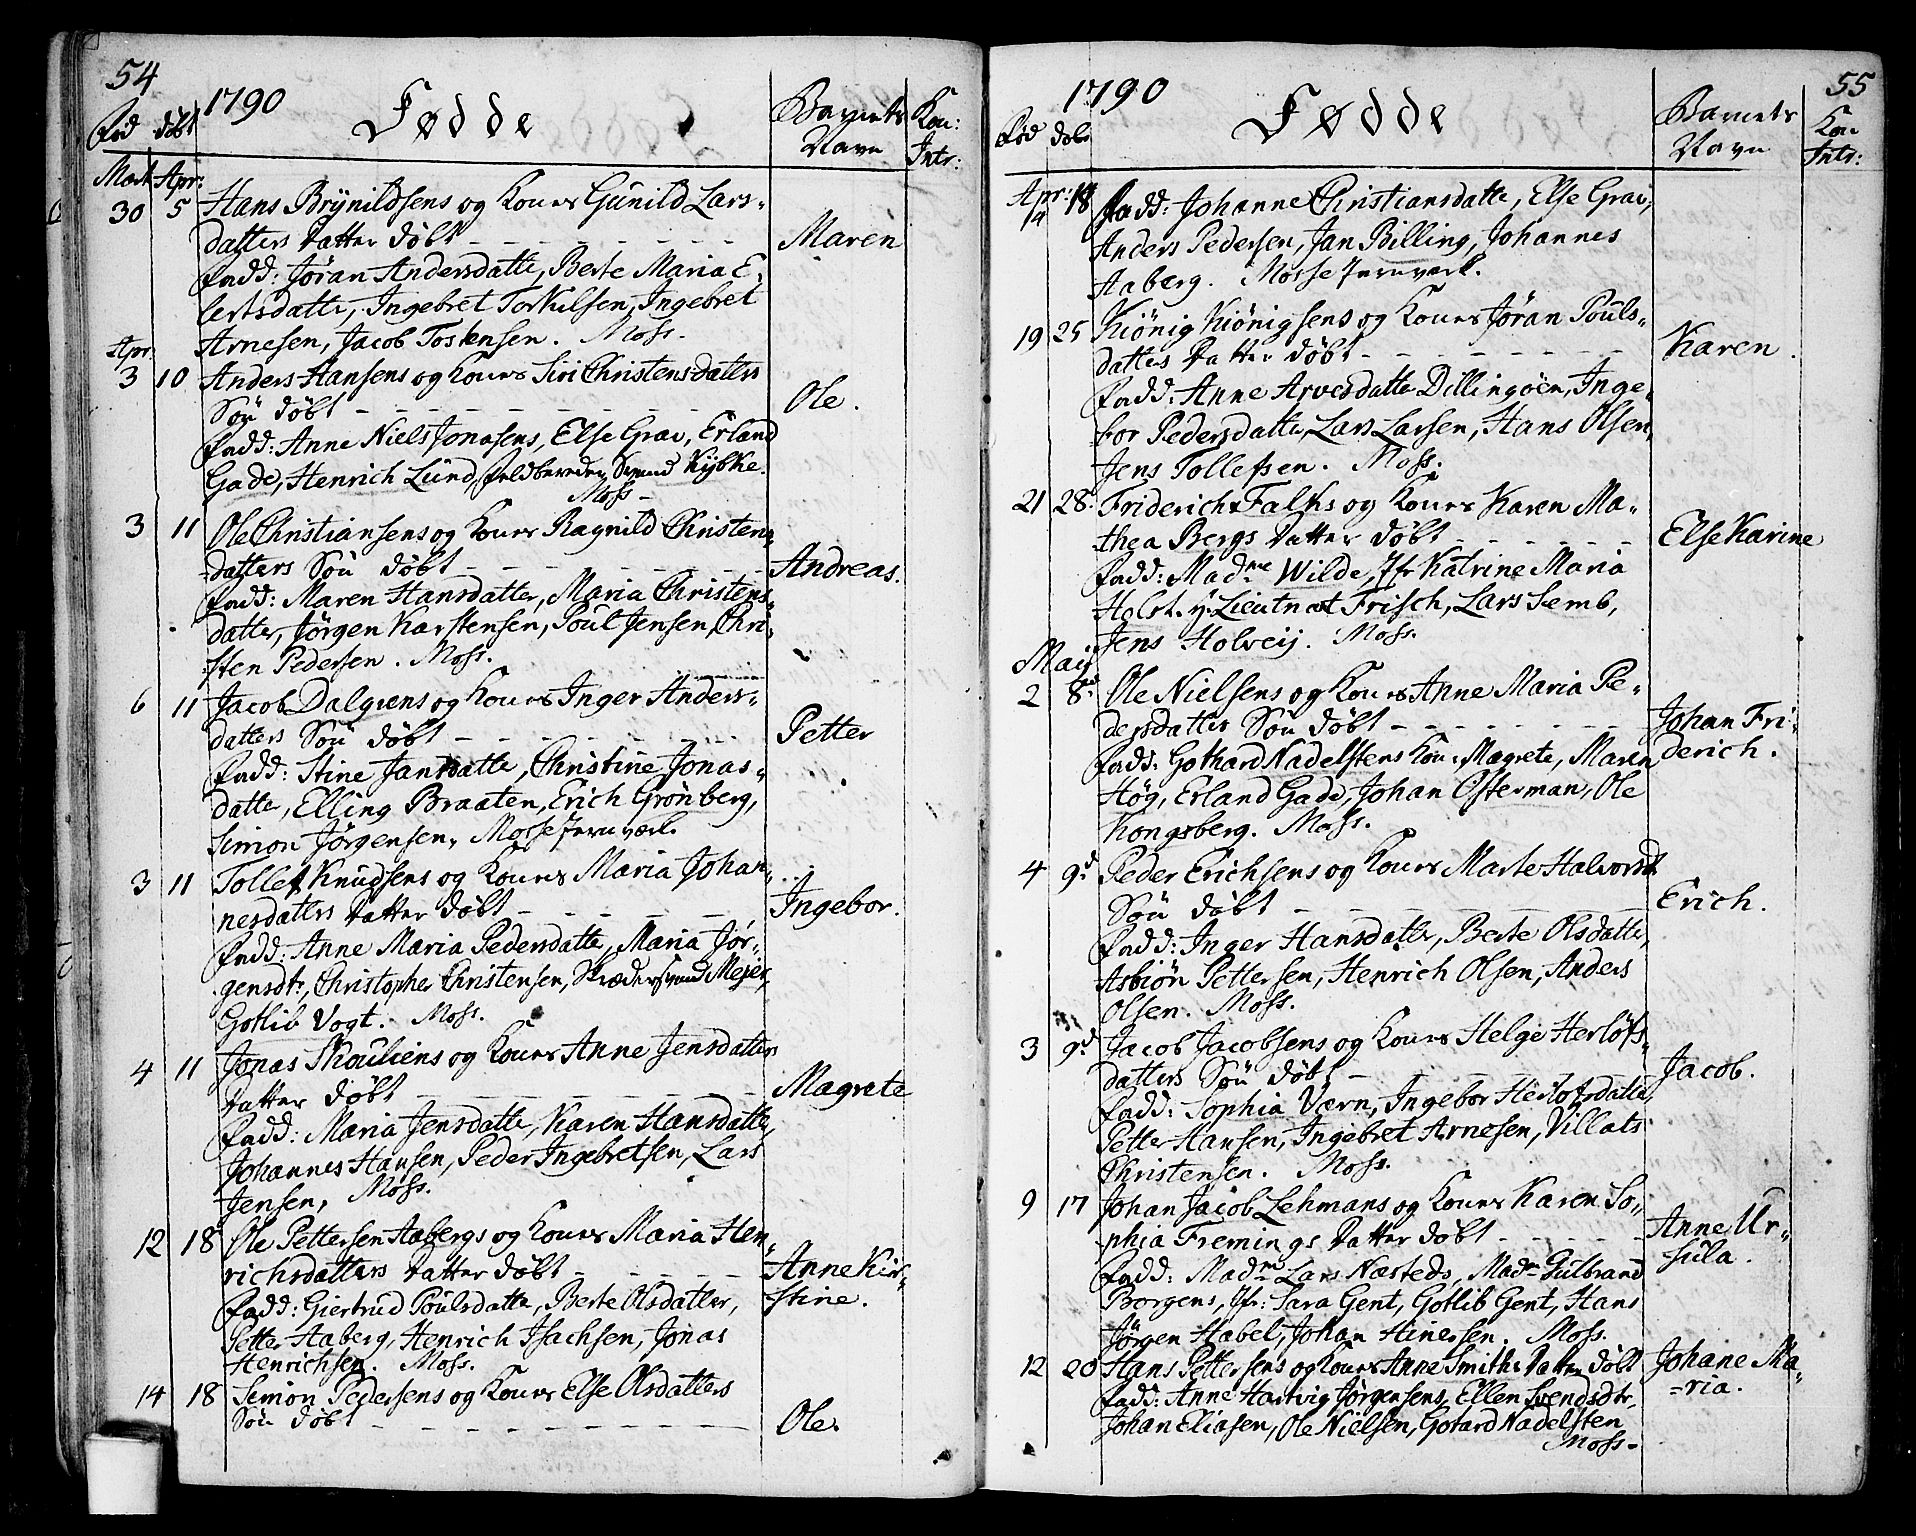 54
1790 Fødde Barnets Kon:
Fød døbt Navn Intr:
Mart. Apr:
30 5 Hans Brÿnildsens og Kones Gunild Lars-
datters Datter døbt - - - Maren
Fadd: Jøran Andersdatte, Berte Maria E-
lertsdatte, Ingebret Torkilsen, Ingebret
Arnesen, Jacob Tostensen. Moss.
Apr:
3 10 Anders Hansens og Kones Siri Christensdatters
Søn døbt - - - Ole.
Fadd: Anne Niels Jonasens, Else Grav, Erland
Gade, Henrich Lund, Feldbereder Svend Kybke.
Moss-
3 11 Ole Christiansens og Kones Ragnild Christens-
datters Søn døbt - - - Andreas.
Fadd: Maren Hansdatter, Maria Christens-
datter, Jørgen Karstensen, Poul Jensen, Chri-
sten Pedersen. Moss.
6 11 Jacob Dalgrens og Kones Inger Anders-
datters Søn døbt - - - Petter
Fadd: Stine Jansdatte, Christine Jonas-
datte, Elling Braaten, Erich Grønberg,
Simon Jørgensen. Mosse Jernverk.
3 11 Tollef Knudsens og Kones Maria Johan-
nesdatters Datter døbt - - - Ingebor.
Fadd: Anne Maria Pedersdatte, Maria Jør-
gensdtr, Christopher Christensen, Skrædersvend Mejer,
Gotlib Vogt. Moss.
4 11 Jonas Skouliens og Kones Anne Jensdatters
Datter døbt - - - Magrete
Fadd: Maria Jensdatte, Karen Hansdatte,
Johannes Hansen, Peder Ingebretsen, Lars
Jensen, Moss.
12 18 Ole Pettersen Aabergs og Kones Maria Hen-
richsdatters Datter døbt - - - Anne Kir-
Fadd: Giertrud Poulsdatte, Berte Olsdatter, stine.
Petter Aaberg, Henrich Isachsen, Jonas
Henrichsen. Moss.
14 18 Simon Pedersens og Kones Else Olsdatters
Søn døbt - - - Ole.
55
1790 Fødde Barnets Kon
Fød døbt Navn Intr:
Apr:
14 18 Fadd: Johanne Christiansdatte, Else Grav,
Anders Pedersen, Jan Billing, Johannes
Aaberg. Mosse Jernverk.
19 25 Kiönig Kiönigsens og Kones Jøran Pouls-
datters Datter døbt - - - Karen.
Fadd: Anne Arvesdatte Dillingöen, Inge-
bor Pedersdatte, Lars Larsen, Hans Olsen,
Jens Tollefsen. Moss.
21 28. Friderich Falks og Kones Karen Ma-
thea Bergs Datter døbt - - - Else Karine
Fadd: Madme Wilde, Jfr Katrine Maria
Holst. Lieutnat Frisch, Lars Semb,
Jens Holveij. Moss.
Maij
2 8de Ole Nielsens og Kones Anne Maria Pe-
dersdatters Søn døbt - - - Johan Fri-
Fadd: Gothard Nadelstens Kon: Magrete, Maren derich.
Høg, Erland Gade, Johan Osterman, Ole
Kongsberg. Moss.
4 9d Peder Erichsens og Kones Marte Halvorsdt
Søn døbt - - - Erich.
Fadd: Inger Hansdatte, Berte Olsdatte,
Asbiön Pettersen, Henrich Olsen, Anders
Olsen. Moss.
3 9d Jacob Jacobsens og Kones Helge Herløfs-
datters Søn døbt - - - Jacob.
Fadd: Sophia Værn, Ingebor Herlofsdatte,
Petter Hansen, Ingebret Arnesen, Villats
Christensen. Moss.
9 17 Johan Jacob Lehmans og Kones Karen So-
phia Fremings Datter døbt - - - Anne Ur-
Fadd: Madme Lars Næsteds, Madm Gulbrand sula.
Borgens, Jfr: Sara Gent, Gotlib Gent, Hans
Jørgen Habel, Johan Hinersen. Moss.
12 20 Hans Pettersens og Kones Anne Smiths Datter døbt Johane Ma-
Fadd: Anne Hartvig Jørgensens, Ellen Svendsdtr, ria.
Johan Eliasen, Ole Nielsen, Gotard Nadelsten
Moss-